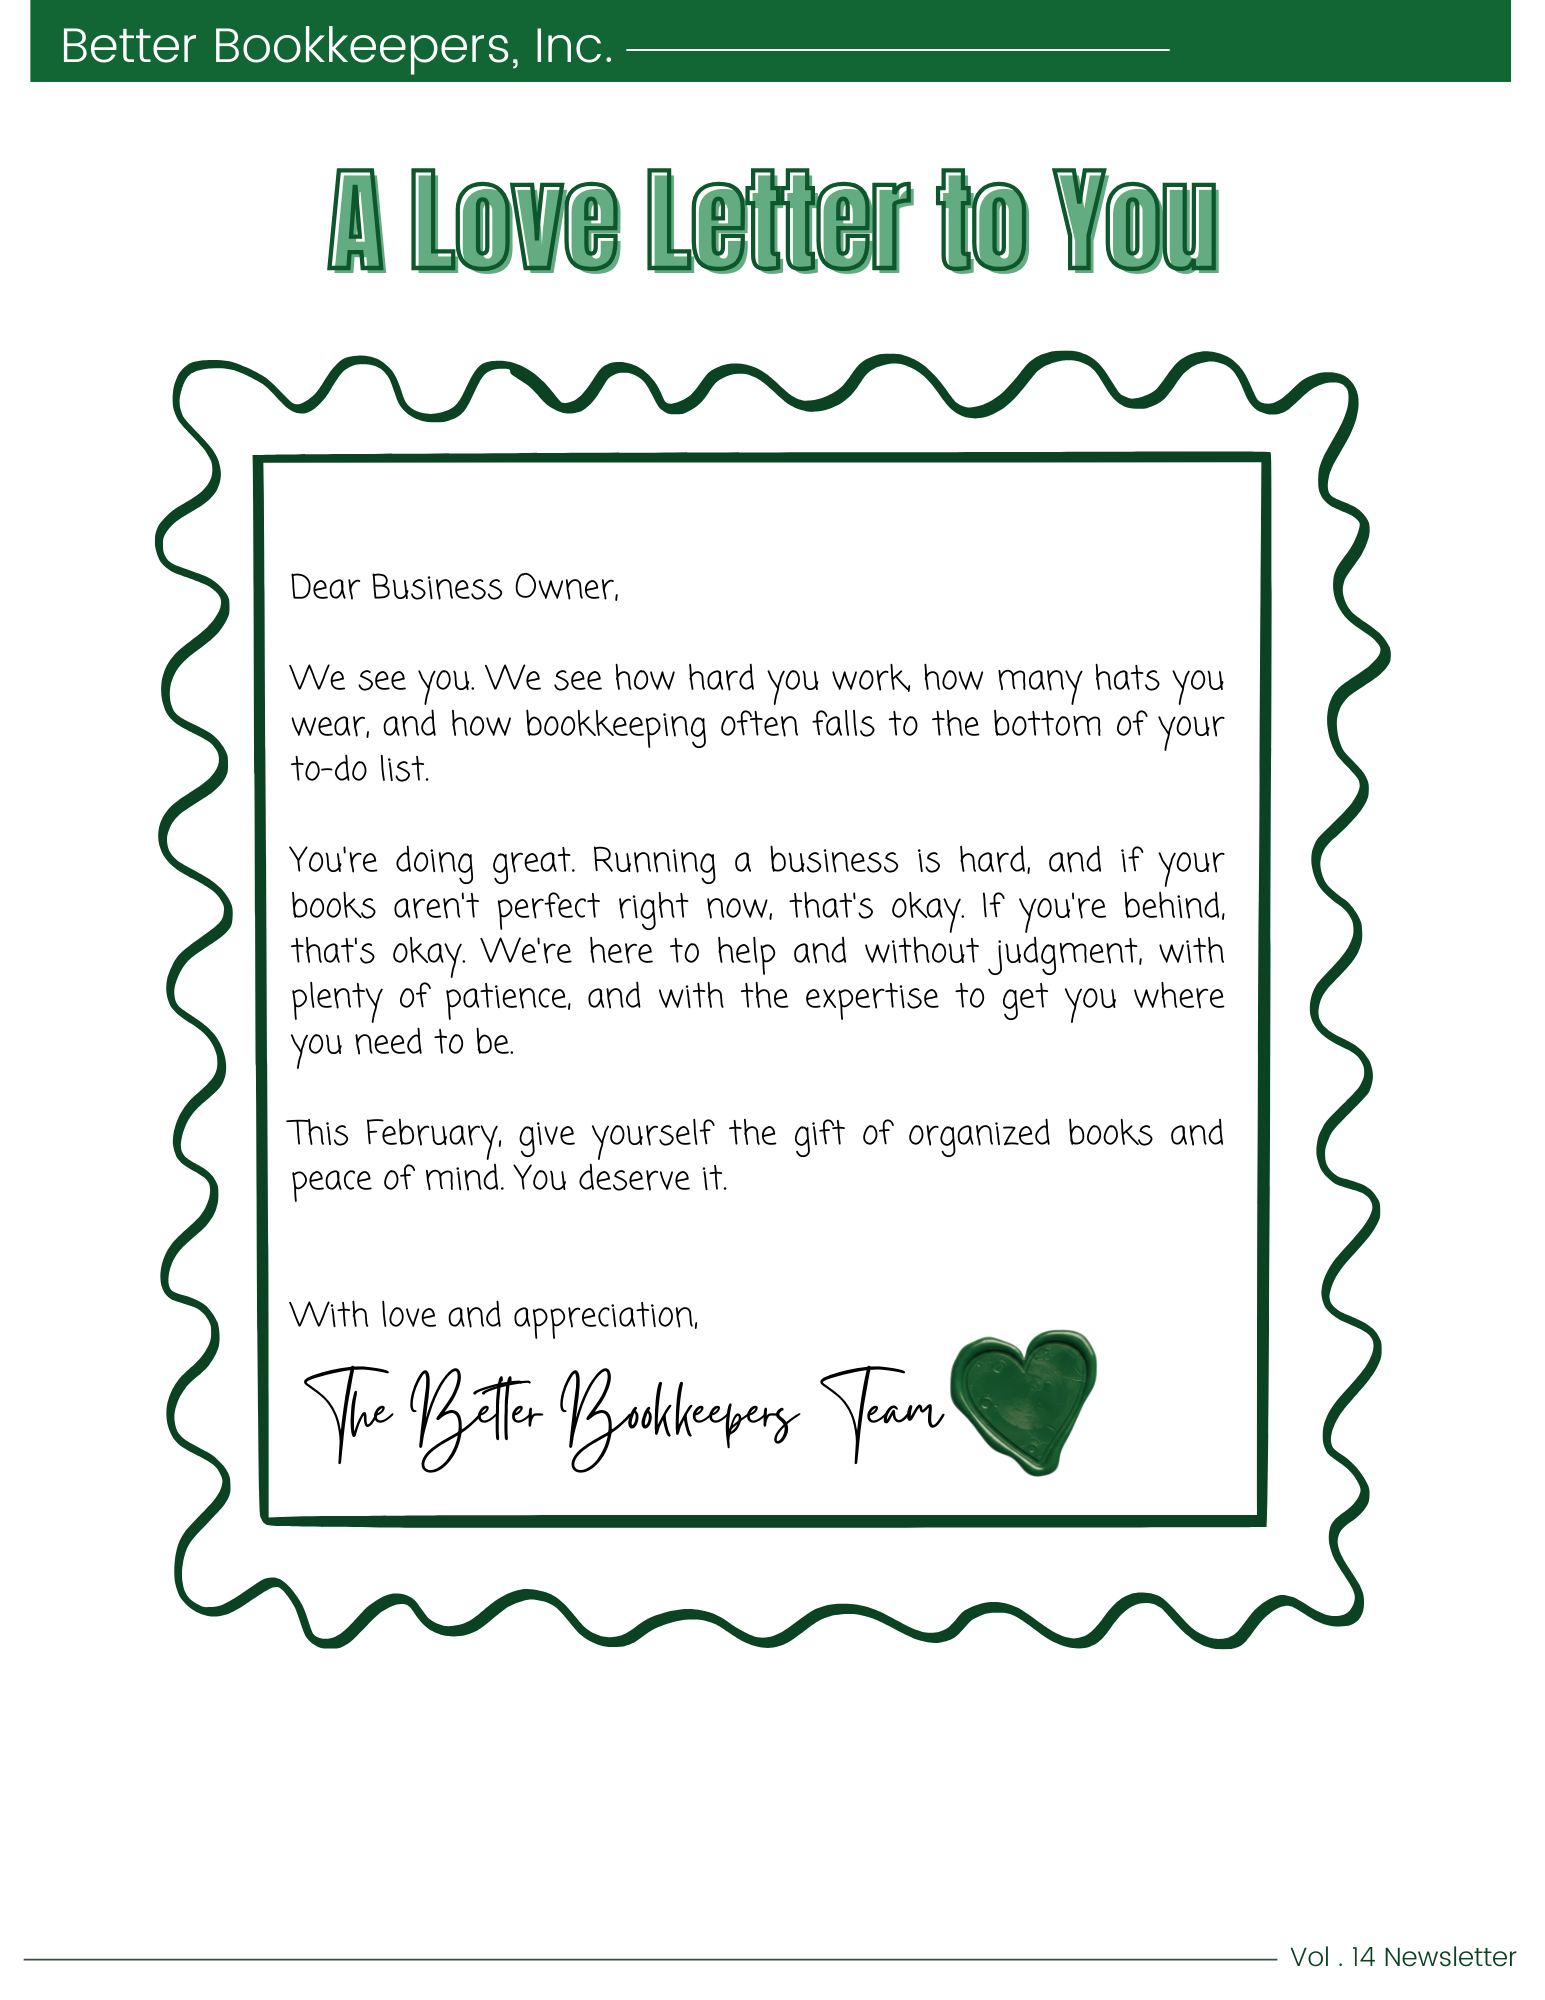 Better Bookkeepers, Inc.
A Love Letter to You
Dear Business Owner,
We see you. We see how hard you work, how many hats you
wear, and how bookkeeping often falls to the bottom of your
to-do list.
You're doing great. Running a business is hard, and if your
books aren't perfect right now, that's okay. If you're behind,
that's okay. We're here to help and without judgment, with
plenty of patience, and with the expertise to get you where
you need to be.
This February, give yourself the gift of organized books and
peace of mind. You deserve it.
With love and appreciation,
The Better Bookkeepers Team
Vol . 14 Newsletter